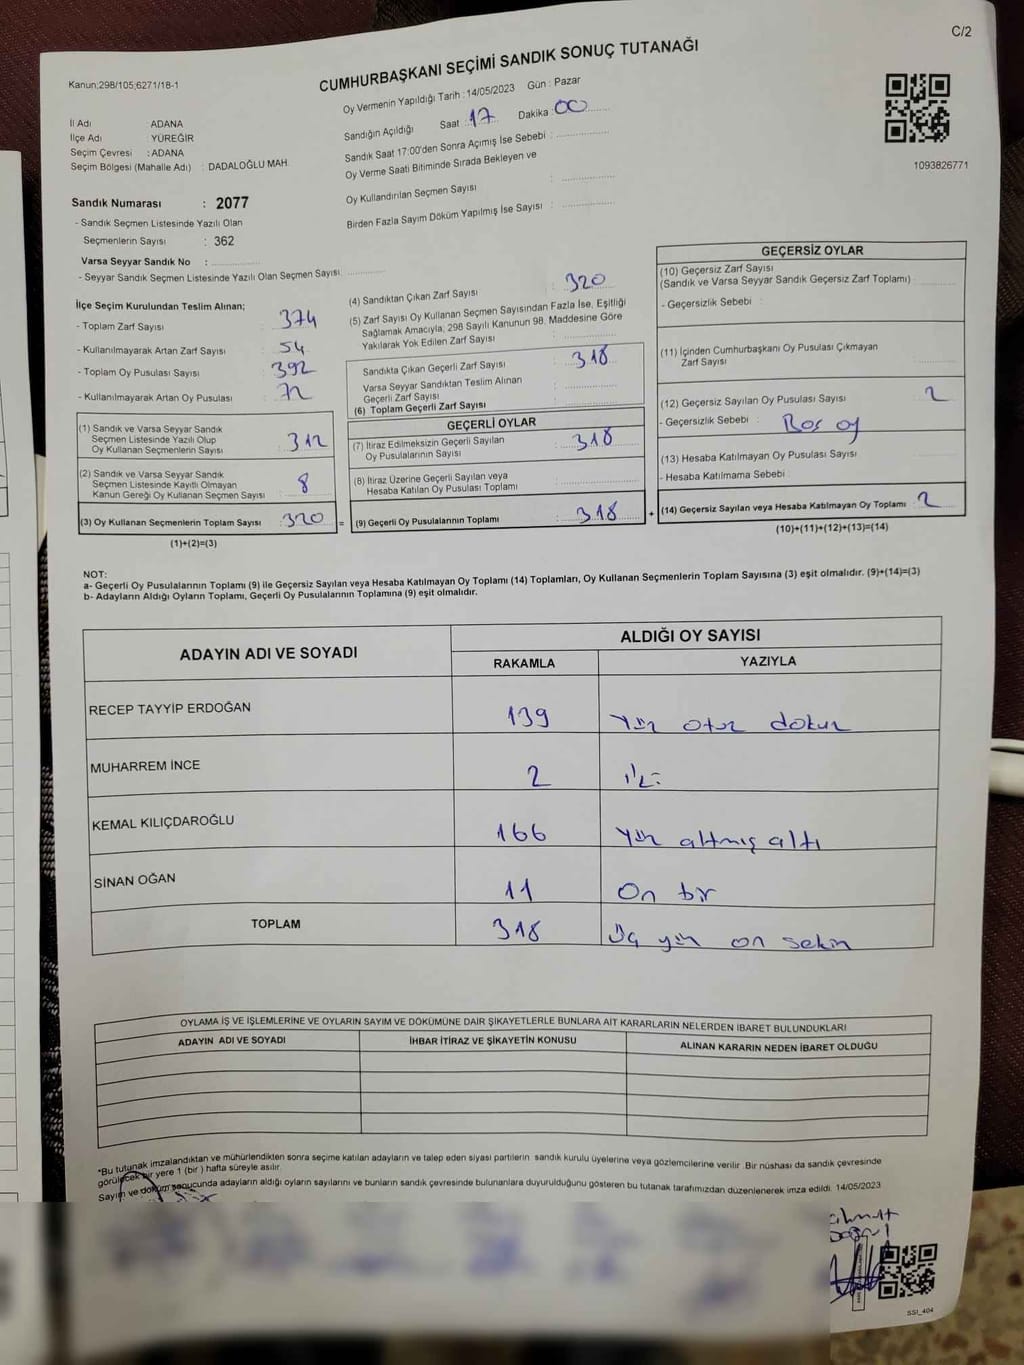 C/2
CUMHURBAŞKANI SEÇİMİ SANDIK SONUÇ TUTANAĞI
Kanun;298/105;6271/18-1
Oy Vermenin Yapıldığı Tarih : 14/05/2023 Gün : Pazar
Sandığın Açıldığı Saat : 17 Dakika : 00
Sandık Saat 17:00'den Sonra Açımış İse Sebebi :
Oy Verme Saati Bitiminde Sırada Bekleyen ve
Oy Kullandırılan Seçmen Sayısı :
Birden Fazla Sayım Döküm Yapılmış İse Sayısı :
1093826771
İl Adı : ADANA
İlçe Adı : YÜREĞİR
Seçim Çevresi : ADANA
Seçim Bölgesi (Mahalle Adı) : DADALOĞLU MAH.
Sandık Numarası : 2077
- Sandık Seçmen Listesinde Yazılı Olan
Seçmenlerin Sayısı : 362
Varsa Seyyar Sandık No :
- Seyyar Sandık Seçmen Listesinde Yazılı Olan Seçmen Sayısı:
İlçe Seçim Kurulundan Teslim Alınan;
- Toplam Zarf Sayısı : 374
- Kullanılmayarak Artan Zarf Sayısı : 54
- Toplam Oy Pusulası Sayısı : 392
- Kullanılmayarak Artan Oy Pusulası : 72
(1) Sandık ve Varsa Seyyar Sandık
Seçmen Listesinde Yazılı Olup
Oy Kullanan Seçmenlerin Sayısı : 312
(2) Sandık ve Varsa Seyyar Sandık
Seçmen Listesinde Kayıtlı Olmayan
Kanun Gereği Oy Kullanan Seçmen Sayısı : 8
(3) Oy Kullanan Seçmenlerin Toplam Sayısı : 320
(1)+(2)=(3)
(4) Sandıktan Çıkan Zarf Sayısı : 320
(5) Zarf Sayısı Oy Kullanan Seçmen Sayısından Fazla İse, Eşitliği
Sağlamak Amacıyla; 298 Sayılı Kanunun 98. Maddesine Göre
Yakılarak Yok Edilen Zarf Sayısı :
Sandıkta Çıkan Geçerli Zarf Sayısı : 318
Varsa Seyyar Sandıktan Teslim Alınan
Geçerli Zarf Sayısı :
(6) Toplam Geçerli Zarf Sayısı :
GEÇERLİ OYLAR
(7) İtiraz Edilmeksizin Geçerli Sayılan
Oy Pusulalarının Sayısı : 318
(8) İtiraz Üzerine Geçerli Sayılan veya
Hesaba Katılan Oy Pusulası Toplamı :
= (9) Geçerli Oy Pusulalarının Toplamı : 318
GEÇERSİZ OYLAR
(10) Geçersiz Zarf Sayısı
(Sandık ve Varsa Seyyar Sandık Geçersiz Zarf Toplamı) :
- Geçersizlik Sebebi :
(11) İçinden Cumhurbaşkanı Oy Pusulası Çıkmayan
Zarf Sayısı :
(12) Geçersiz Sayılan Oy Pusulası Sayısı : 2
- Geçersizlik Sebebi : Boş oy
(13) Hesaba Katılmayan Oy Pusulası Sayısı :
- Hesaba Katılmama Sebebi :
+ (14) Geçersiz Sayılan veya Hesaba Katılmayan Oy Toplamı : 2
(10)+(11)+(12)+(13)=(14)
NOT:
a- Geçerli Oy Pusulalarının Toplamı (9) ile Geçersiz Sayılan veya Hesaba Katılmayan Oy Toplamı (14) Toplamları, Oy Kullanan Seçmenlerin Toplam Sayısına (3) eşit olmalıdır. (9)+(14)=(3)
b- Adayların Aldığı Oyların Toplamı, Geçerli Oy Pusulalarının Toplamına (9) eşit olmalıdır.
ADAYIN ADI VE SOYADI ALDIĞI OY SAYISI
RAKAMLA YAZIYLA
RECEP TAYYİP ERDOĞAN 139 Yüz otuz dokuz
MUHARREM İNCE 2 iki
KEMAL KILIÇDAROĞLU 166 Yüz altmış altı
SİNAN OĞAN 11 On bir
TOPLAM 318 Üç yüz on sekiz
OYLAMA İŞ VE İŞLEMLERİNE VE OYLARIN SAYIM VE DÖKÜMÜNE DAİR ŞİKAYETLERLE BUNLARA AİT KARARLARIN NELERDEN İBARET BULUNDUKLARI
ADAYIN ADI VE SOYADI İHBAR İTİRAZ VE ŞİKAYETİN KONUSU ALINAN KARARIN NEDEN İBARET OLDUĞU
*Bu tutanak imzalandıktan ve mühürlendikten sonra seçime katılan adayların ve talep eden siyasi partilerin sandık kurulu üyelerine veya gözlemcilerine verilir. Bir nüshası da sandık çevresinde
görülecek bir yere 1 (bir ) hafta süreyle asılır.
Sayım ve döküm sonucunda adayların aldığı oyların sayılarını ve bunların sandık çevresinde bulunanlara duyurulduğunu gösteren bu tutanak tarafımızdan düzenlenerek imza edildi. 14/05/2023
SSI_404